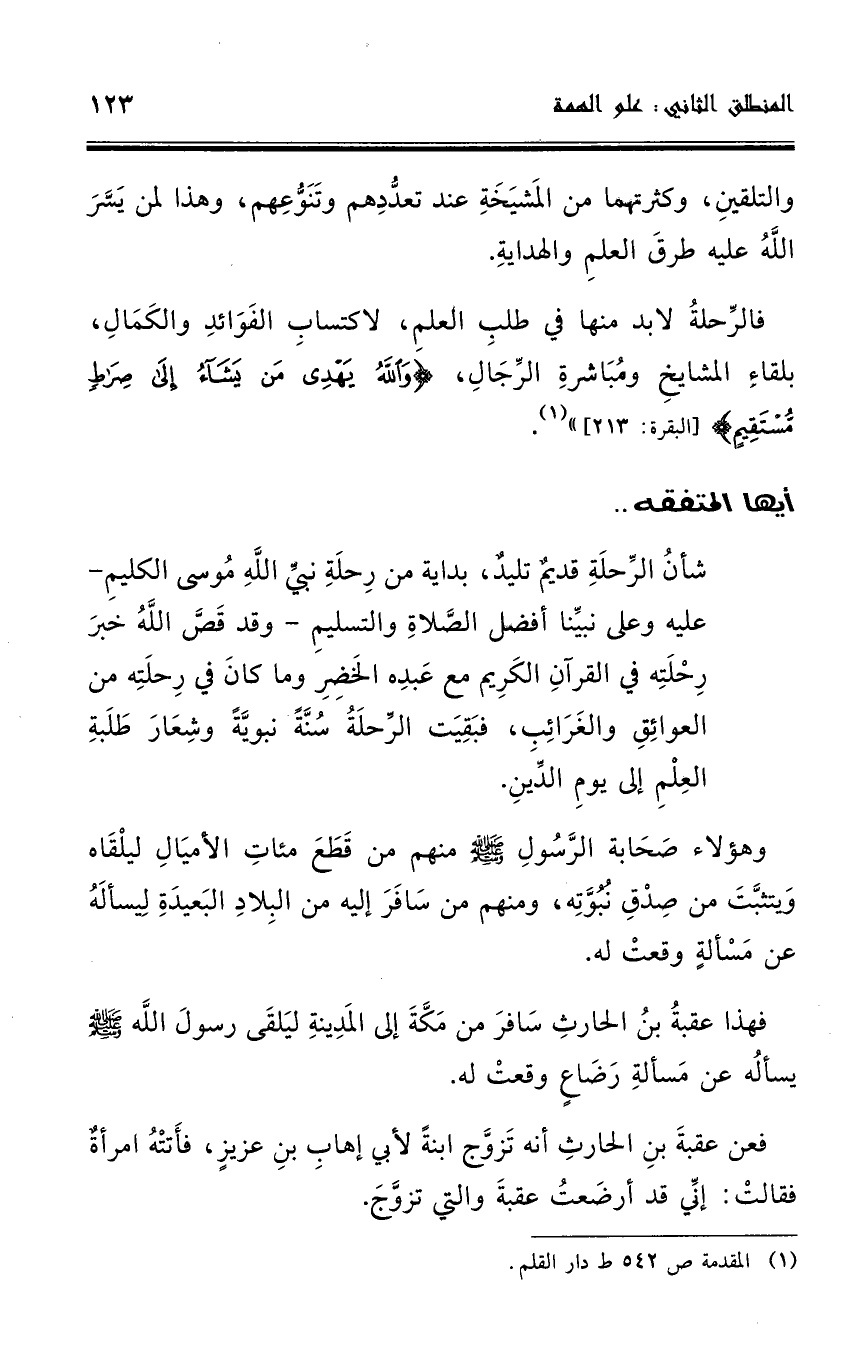 المنطلق الثاني: علو الهمة ١٢٣
والتلقينِ، وكثرتهما من المَشيَخَةِ عند تعدُّدِهم وتَنَوُّعِهم، وهذا لمن يَسَّرَ
اللَّهُ عليه طرقَ العلمِ والهدايةِ.
فالرِّحلةُ لابد منها في طلبِ العلمِ، لاكتسابِ الفَوَائدِ والكَمَالِ،
بلقاءِ المشايخِ ومُبَاشرةِ الرِّجَالِ، ﴿وَٱللَّهُ يَهْدِى مَن يَشَآءُ إِلَىٰ صِرَٰطٍ
مُّسْتَقِيمٍ﴾ [البقرة: ٢١٣]»(١).
أيها المتفقه ..
شأنُ الرِّحلَةِ قديمٌ تليدٌ، بداية من رِحلَةِ نبيِّ اللَّهِ مُوسى الكليمِ-
عليه وعلى نبيِّنا أفضل الصَّلاةِ والتسليمِ - وقد قَصَّ اللَّهُ خبرَ
رِحْلَتِه في القرآنِ الكَرِيم مع عَبدِه الخَضِرِ وما كانَ في رِحلَتِه من
العوائِقِ والغَرَائِبِ، فبَقِيَت الرِّحلَةُ سُنَّةً نبويَّةً وشِعَارَ طَلَبةِ
العِلْمِ إلى يومِ الدِّينِ.
وهؤلاء صَحَابة الرَّسُولِ ﷺ منهم من قَطَعَ مئاتِ الأميَالِ ليلْقَاه
وَيتثبَّتَ من صِدْقِ نُبُوَّتِه، ومنهم من سَافَرَ إليه من البِلادِ البَعيدَةِ لِيسألَهُ
عن مَسْألةٍ وقعتْ له.
فهذا عقبةُ بنُ الحارثِ سَافرَ من مَكَّةَ إلى المَدِينةِ ليَلقَى رسولَ اللَّه ﷺ
يسألُه عن مَسألةِ رَضَاعٍ وقعتْ له.
فعن عقبةَ بنِ الحارثِ أنه تَزوَّج ابنةً لأبي إهابِ بنِ عزيزٍ، فأَتتْهُ امرأةٌ
فقالتْ: إنِّي قد أرضَعتُ عقبةَ والتي تزوَّجَ.
(١) المقدمة ص ٥٤٢ ط دار القلم.